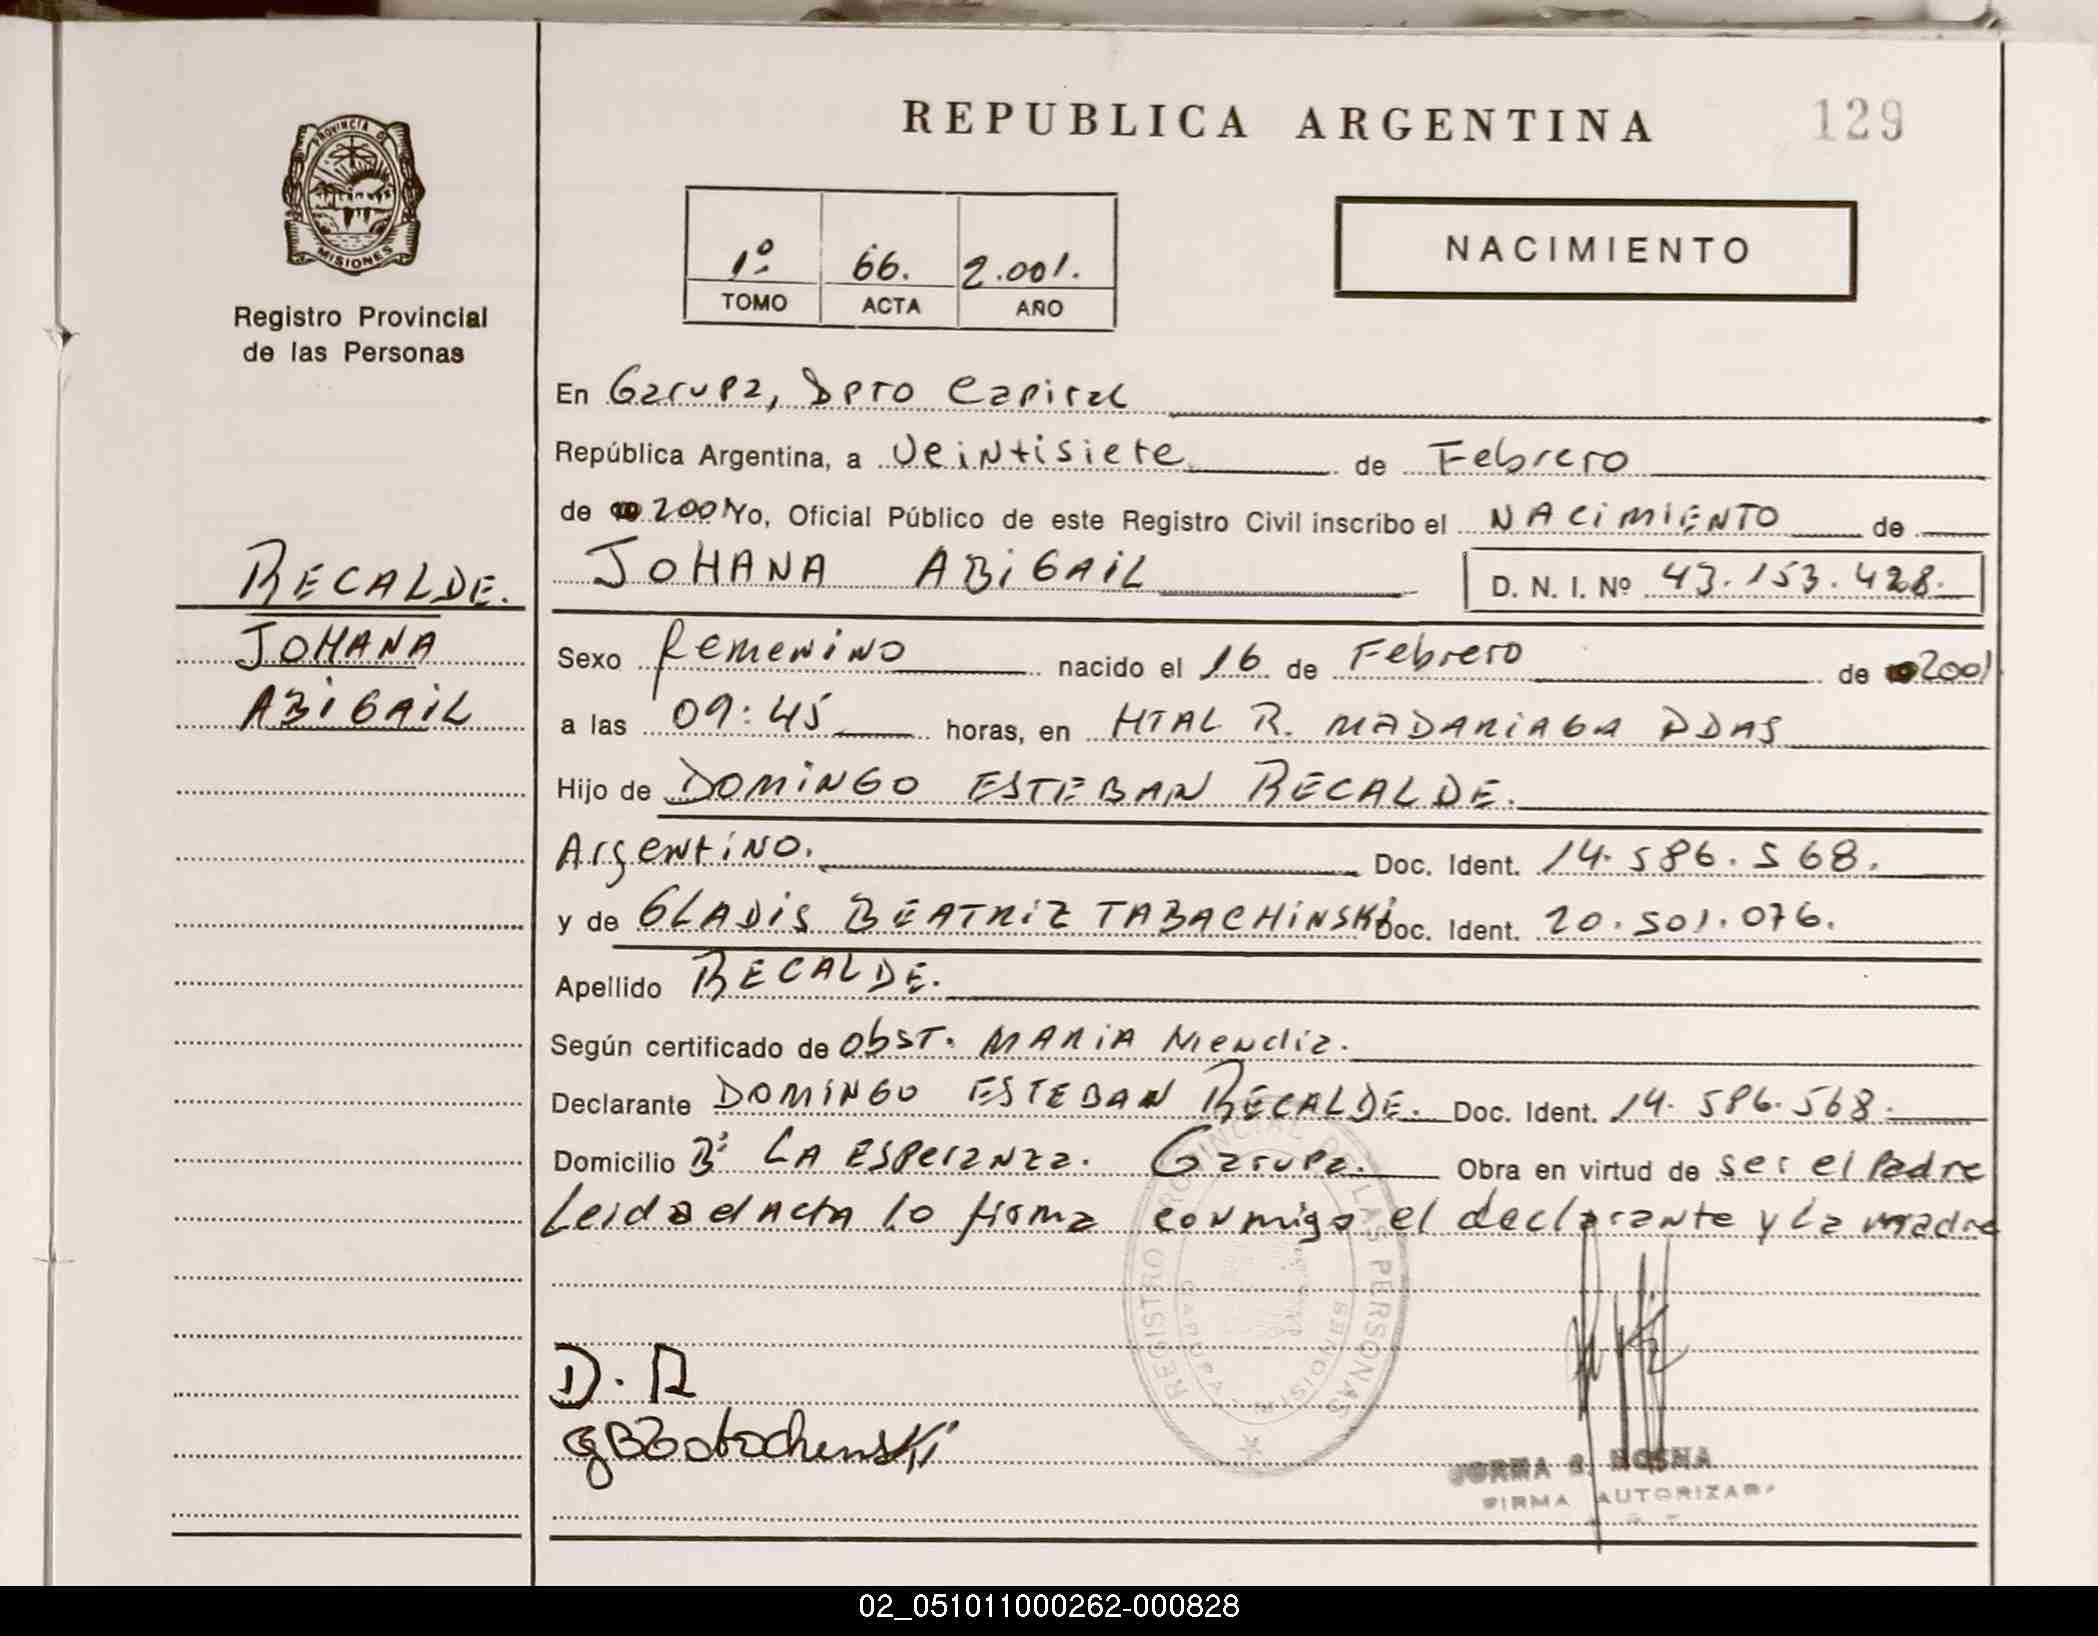 REPUBLICA ARGENTINA
129
PROVINCIA DE
MISIONES
Registro Provincial
de las Personas
1º 66. 2.001.
TOMO ACTA AÑO
NACIMIENTO
RECALDE.
JOHANA
ABIGAIL
En Garupa, Dpto Capital
República Argentina, a Veintisiete de Febrero
de 2001 Yo, Oficial Público de este Registro Civil inscribo el NACIMIENTO de
JOHANA ABIGAIL D. N. I. Nº 43.153.428.
Sexo Femenino nacido el 16 de Febrero de 2001
a las 09:45 horas, en HTAL R. MADARIAGA PDAS
Hijo de DOMINGO ESTEBAN RECALDE.
Argentino. Doc. Ident. 14.586.568.
y de GLADIS BEATRIZ TABACHINSKI Doc. Ident. 20.501.076.
Apellido RECALDE.
Según certificado de obst. MARIA
Declarante DOMINGO ESTEBAN RECALDE. Doc. Ident. 14.586.568.
Domicilio Bº LA ESPeranza. Garupa. Obra en virtud de ser el Padre
Leida el Acta lo firma conmigo el declarante y La madre
REGISTRO PROVINCIAL DE LAS PERSONAS
GARUPA MISIONES
D. R
FIRMA AUTORIZADA
02_051011000262-000828